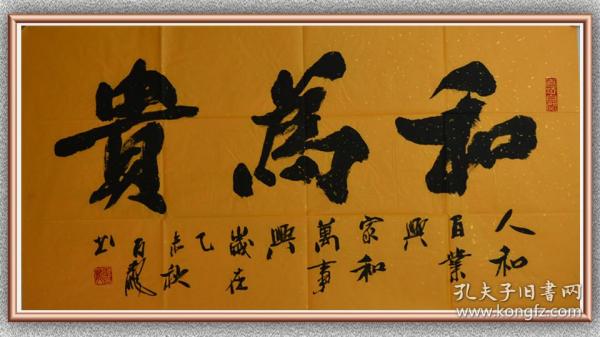 和為貴
人和
百業
興
家和
萬事
興
歲在
乙
未秋
书
孔夫子旧書网
www.kongfz.com